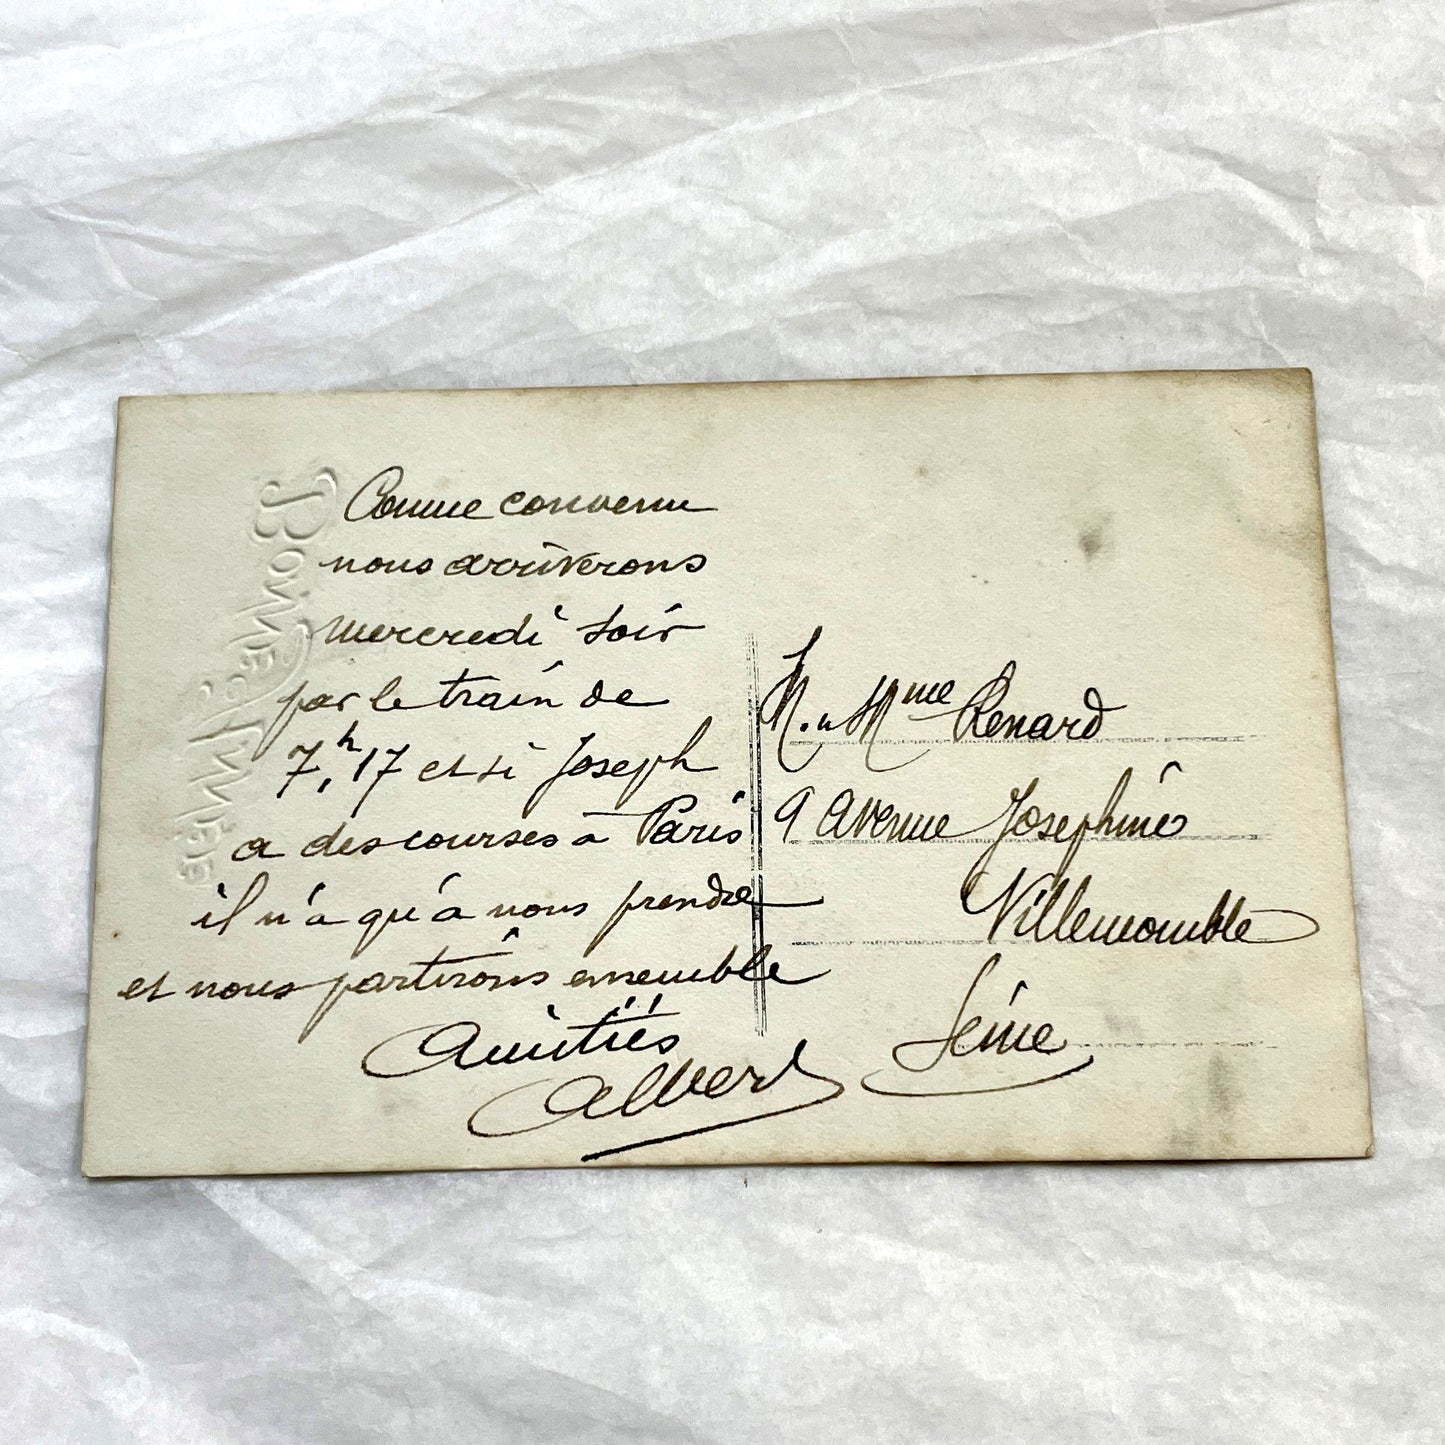 Comme convenu
nous arriverons
mercredi soir
par le train de
7h,17 et si Joseph
a des courses à Paris
il n'a qu'à nous prendre
et nous partirons ensemble
Amitiés
Albert
M. et Mme Renard
9 Avenue Joséphine
Villemomble
Seine
Bonne Année